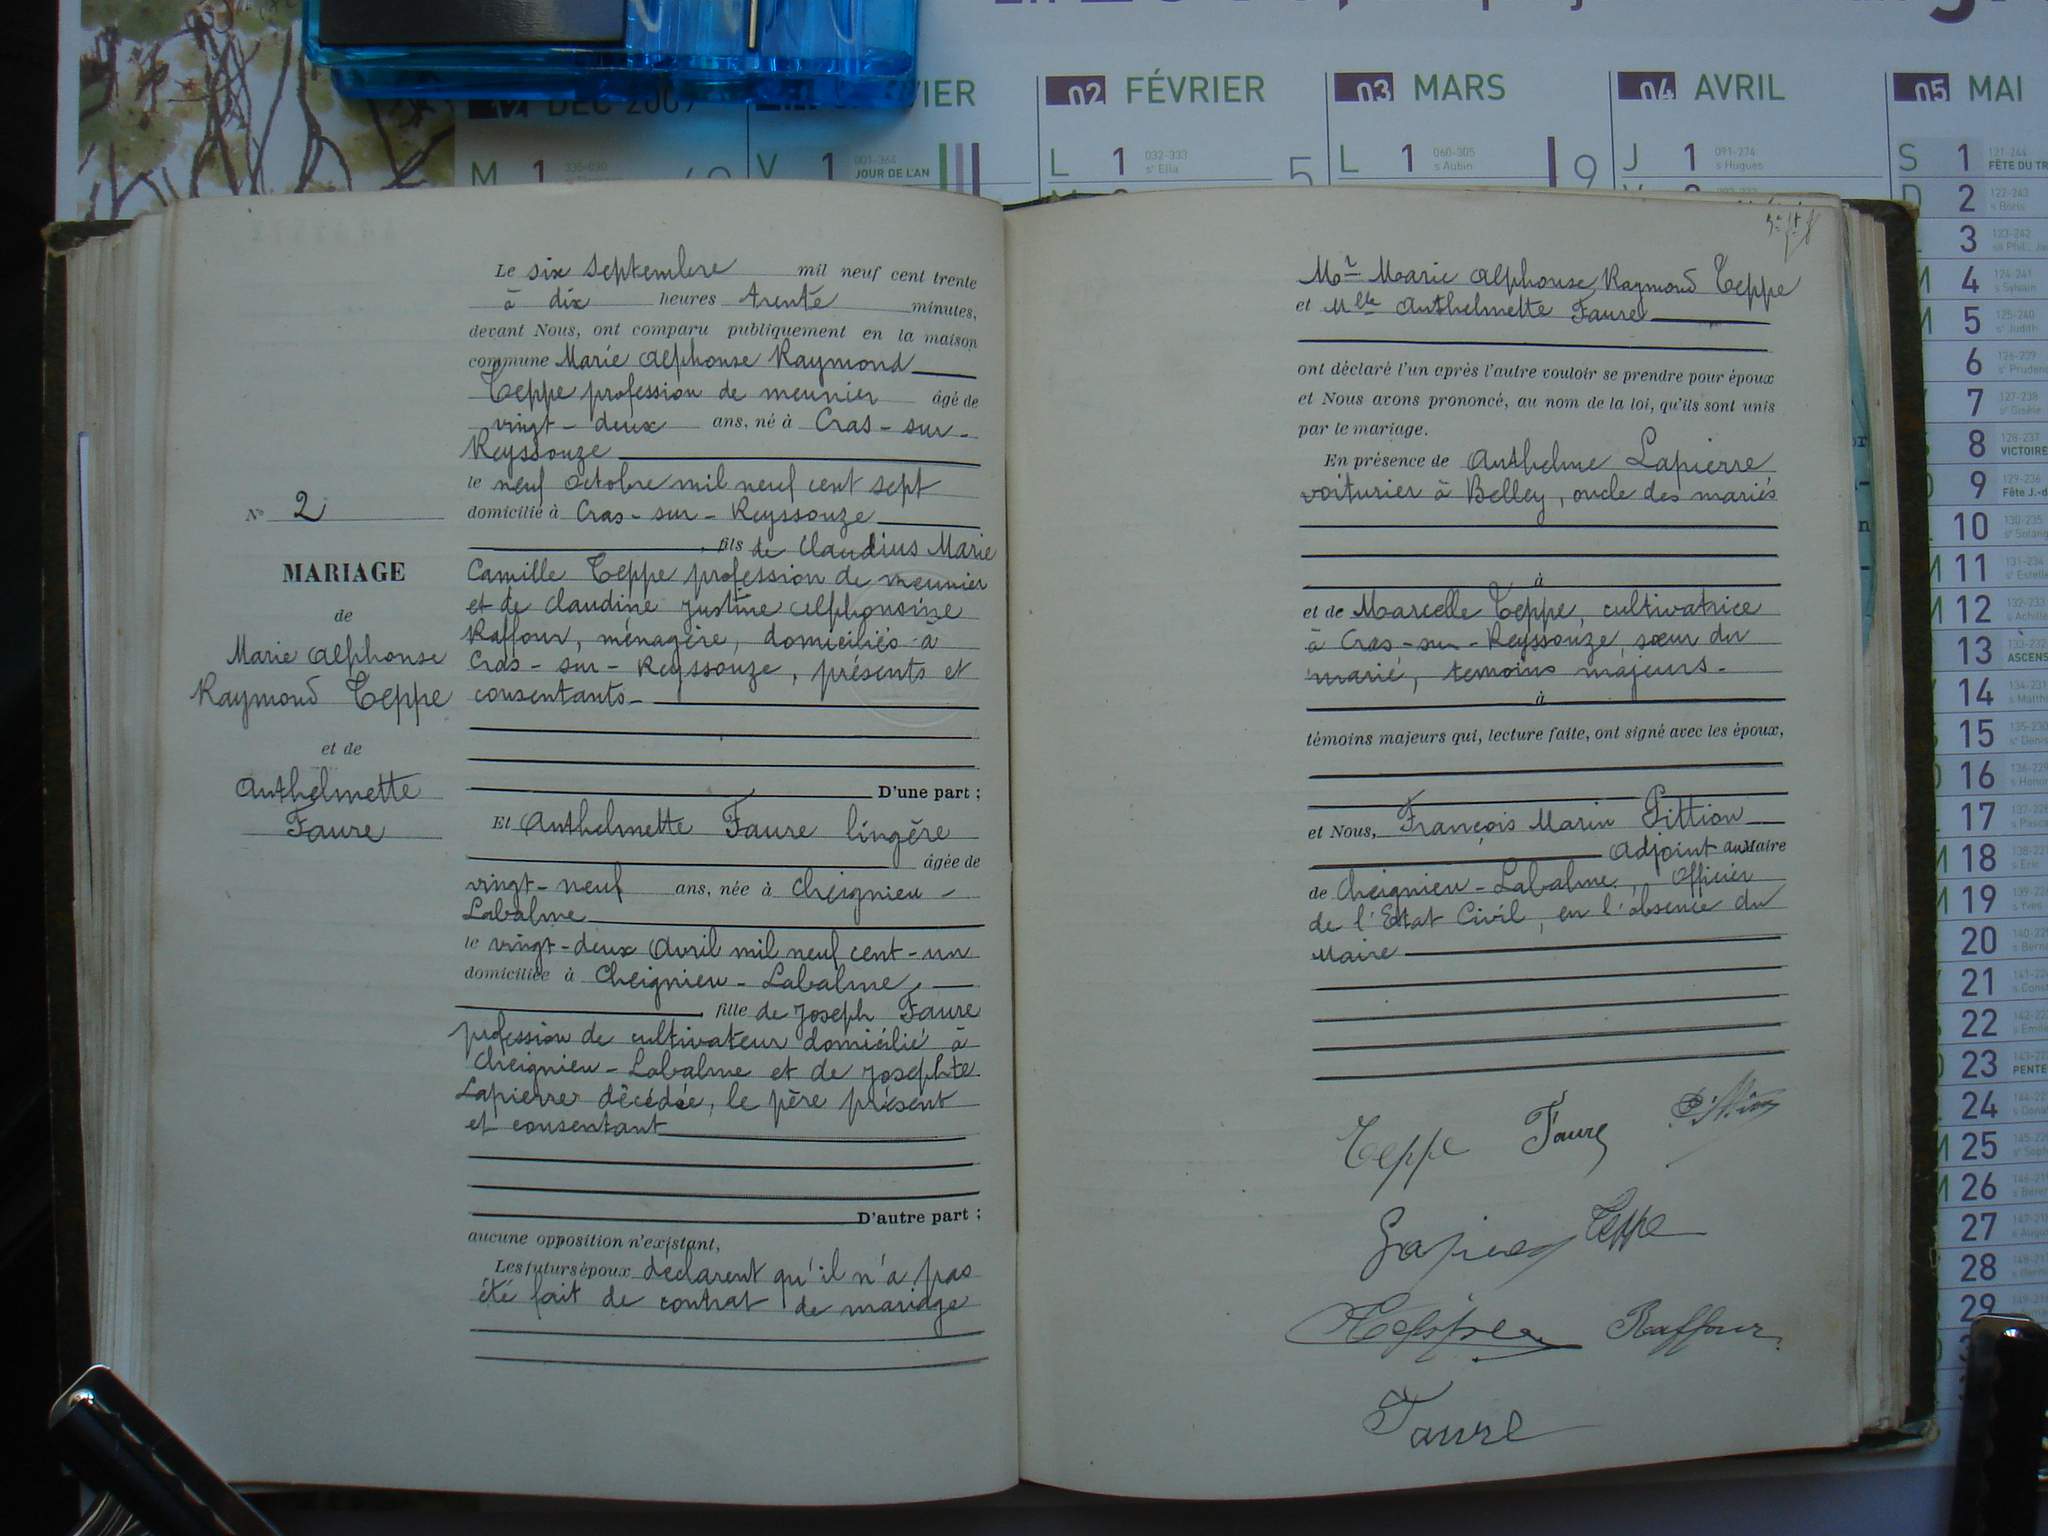 02 FÉVRIER
03 MARS
04 AVRIL
05 MAI
DEC 2009
M 1
V 1 001-364 JOUR DE L'AN
L 1 032-333 sᵉ Ella 5
L 1 060-305 s Aubin 9
J 1 091-274 s Hugues
S 1 121-244 FÊTE DU TR
D 2 122-243 s Boris
3
4
5
6
7
8 VICTOIRE
9 Fête J.-d
10
11
12
13 ASCENS
14
15
16
17
18
19
20
21
22
23 PENTE
24
25
26
27
28
29
Nº 2
MARIAGE
de
Marie Alphonse
Raymond Teppe
et de
Anthelmette
Faure
Le six Septembre mil neuf cent trente
à dix heures trente minutes,
devant Nous, ont comparu publiquement en la maison
commune Marie Alphonse Raymond
Teppe profession de meunier âgé de
vingt-deux ans, né à Cras-sur-
Reyssouze
le neuf Octobre mil neuf cent sept
domicilié à Cras-sur-Reyssouze
, fils de Claudius Marie
Camille Teppe profession de meunier
et de Claudine Justine Alphonsine
Raffour, ménagère, domiciliés à
Cras-sur-Reyssouze, présents et
consentants
D'une part ;
Et Anthelmette Faure lingère
âgée de
vingt-neuf ans, née à Cheignieu-
Labalme
le vingt-deux Avril mil neuf cent-un
domiciliée à Cheignieu-Labalme,
, fille de Joseph Faure
profession de cultivateur domicilié à
Cheignieu-Labalme et de Josephte
Lapierre décédée, le père présent
et consentant
D'autre part ;
aucune opposition n'existant,
Les futurs époux déclarent qu'il n'a pas
été fait de contrat de mariage
Mr Marie Alphonse Raymond Teppe
et Mlle Anthelmette Faure
ont déclaré l'un après l'autre vouloir se prendre pour époux
et Nous avons prononcé, au nom de la loi, qu'ils sont unis
par le mariage.
En présence de Anthelme Lapierre
voiturier à Belley, oncle des mariés
à
et de Marcelle Teppe, cultivatrice
à Cras-sur-Reyssouze, sœur du
marié, temoins majeurs.
à
témoins majeurs qui, lecture faite, ont signé avec les époux,
et Nous, François Marin Pittion
Adjoint au Maire
de Cheignieu-Labalme, Officier
de l'Etat Civil, en l'absence du
Maire
Teppe Faure Pittion
Lapierre Teppe
Teppe Raffour
Faure